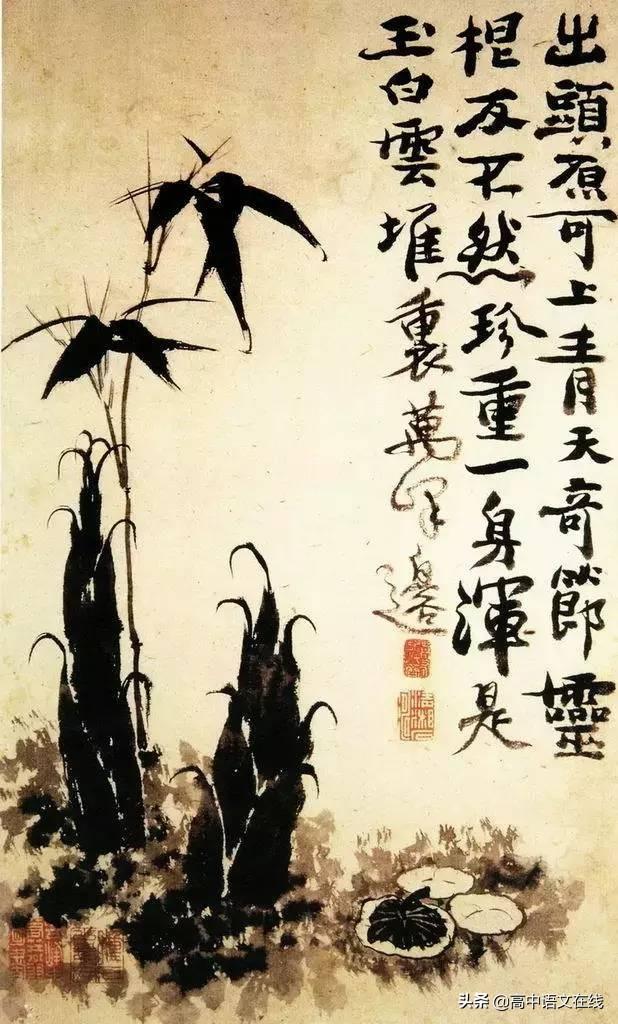 出頭原可上青天奇節靈
根反不然珍重一身渾是
玉白雲堆裏萬峯邊
头条 @高中语文在线